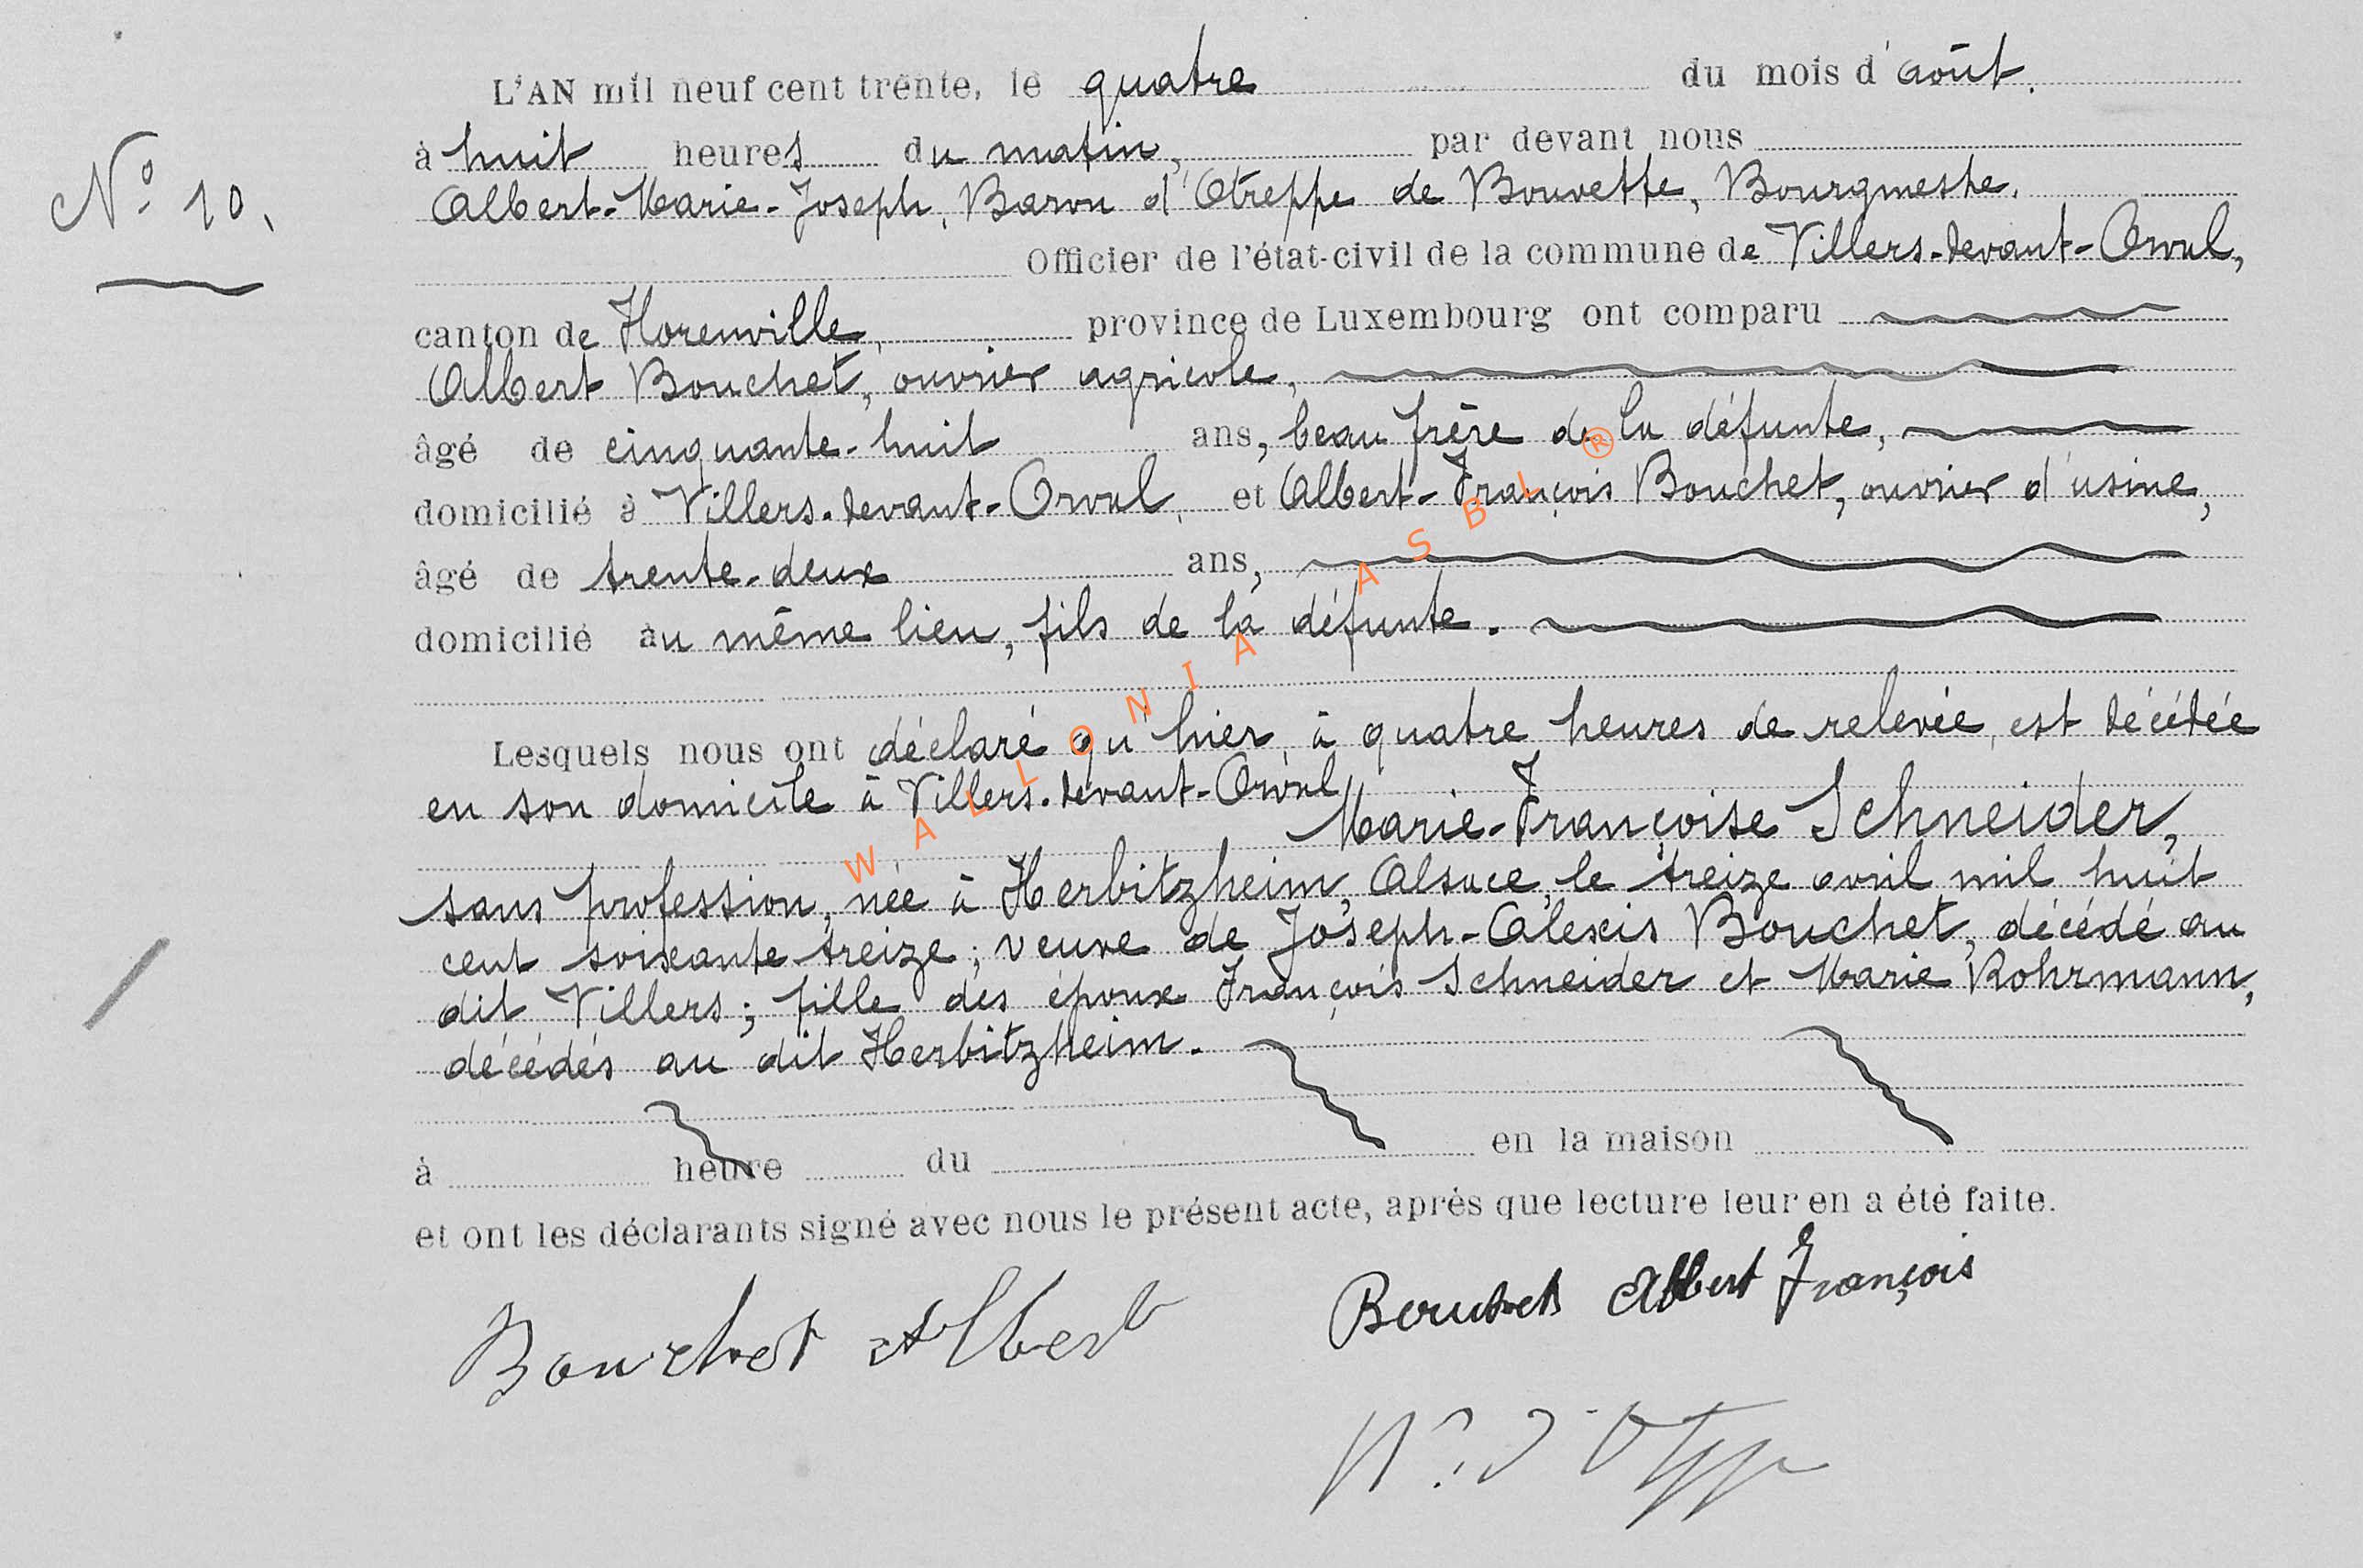 L'AN mil neuf cent trente, le quatre du mois d'août.
à huit heures du matin, par devant nous
Nº 10.
Albert-Marie-Joseph, Baron d'Otreppe de Bouvette, Bourgmestre.
Officier de l'état-civil de la commune de Villers-devant-Orval,
canton de Florenville, province de Luxembourg ont comparu
Albert Bouchet, ouvrier agricole,
âgé de cinquante-huit ans, beau frère de la défunte,
domicilié à Villers-devant-Orval, et Albert-François Bouchet, ouvrier d'usine,
âgé de trente-deux ans,
domicilié au même lieu, fils de la défunte.
Lesquels nous ont déclaré qu'hier, à quatre heures de relevée, est décédée
en son domicile à Villers-devant-Orval
Marie-Françoise Schneider,
sans profession, née à Herbitzheim, Alsace, le treize avril mil huit
cent soixante-treize; veuve de Joseph-Alexis Bouchet, décédé au
dit Villers; fille des époux François Schneider et Marie Rohrmann,
décédés au dit Herbitzheim.
à heure du en la maison
et ont les déclarants signé avec nous le présent acte, après que lecture leur en a été faite.
Bouchet Albert
Bouchet Albert François
WALLONIA ASBL ®